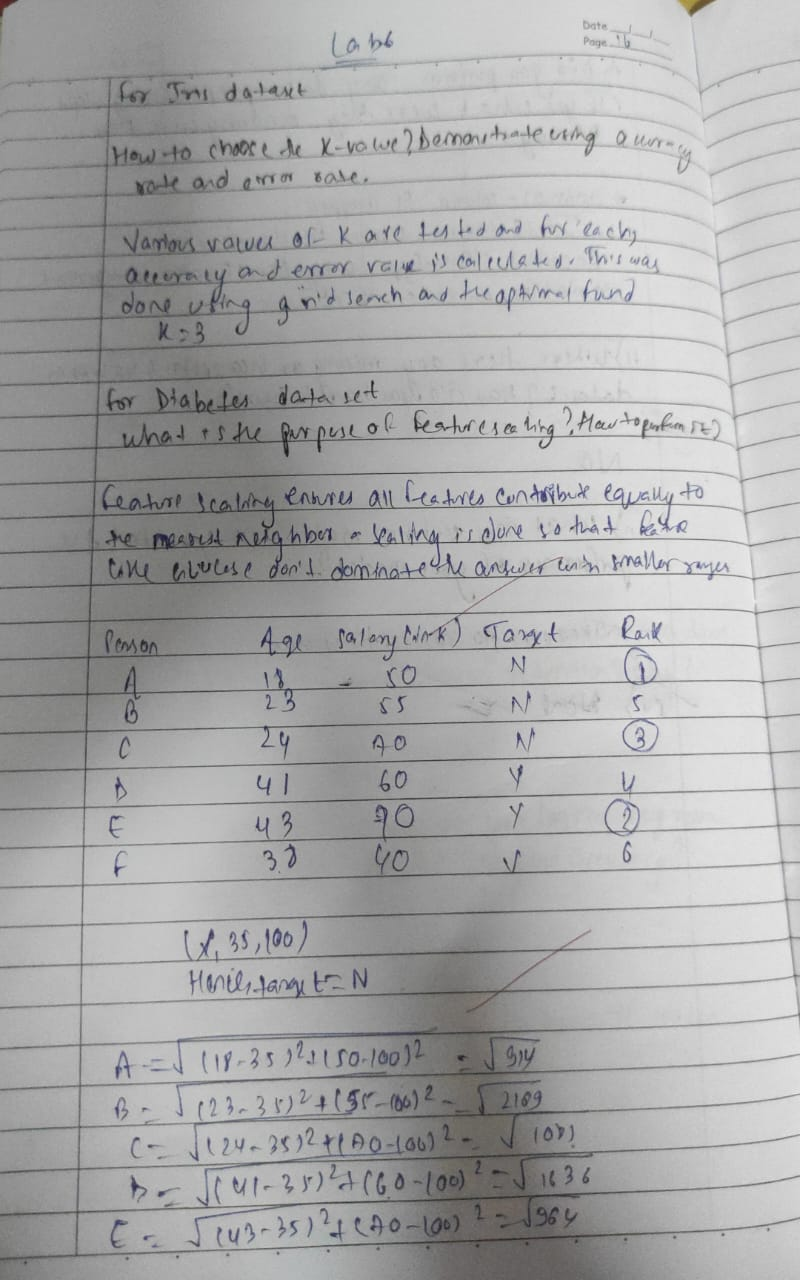 Date / /
Page 16
Lab 6
For Iris dataset
How to choose the K-value? Demonstrate using accuracy
rate and error rate.
Various values of K are tested and for each,
accuracy and error value is calculated. This was
done using grid search and the optimal fund
K=3
for Diabetes data set
what is the purpose of feature scaling? How to perform it?
feature scaling ensures all features contribute equally to
the nearest neighbor. Scaling is done so that feature
like glucose don't dominate the answer with smaller ranges
Person Age Salary (in K) Target Rank
A 18 50 N 1
B 23 55 N 5
C 24 70 N 3
D 41 60 Y 4
E 43 70 Y 2
F 38 40 Y 6
(X, 35, 100)
Hence, target = N
A = √(18-35)²+(50-100)² = √914
B = √(23-35)²+(55-100)² = √2169
C = √(24-35)²+(70-100)² = √1021
D = √(41-35)²+(60-100)² = √1636
E = √(43-35)²+(70-100)² = √964